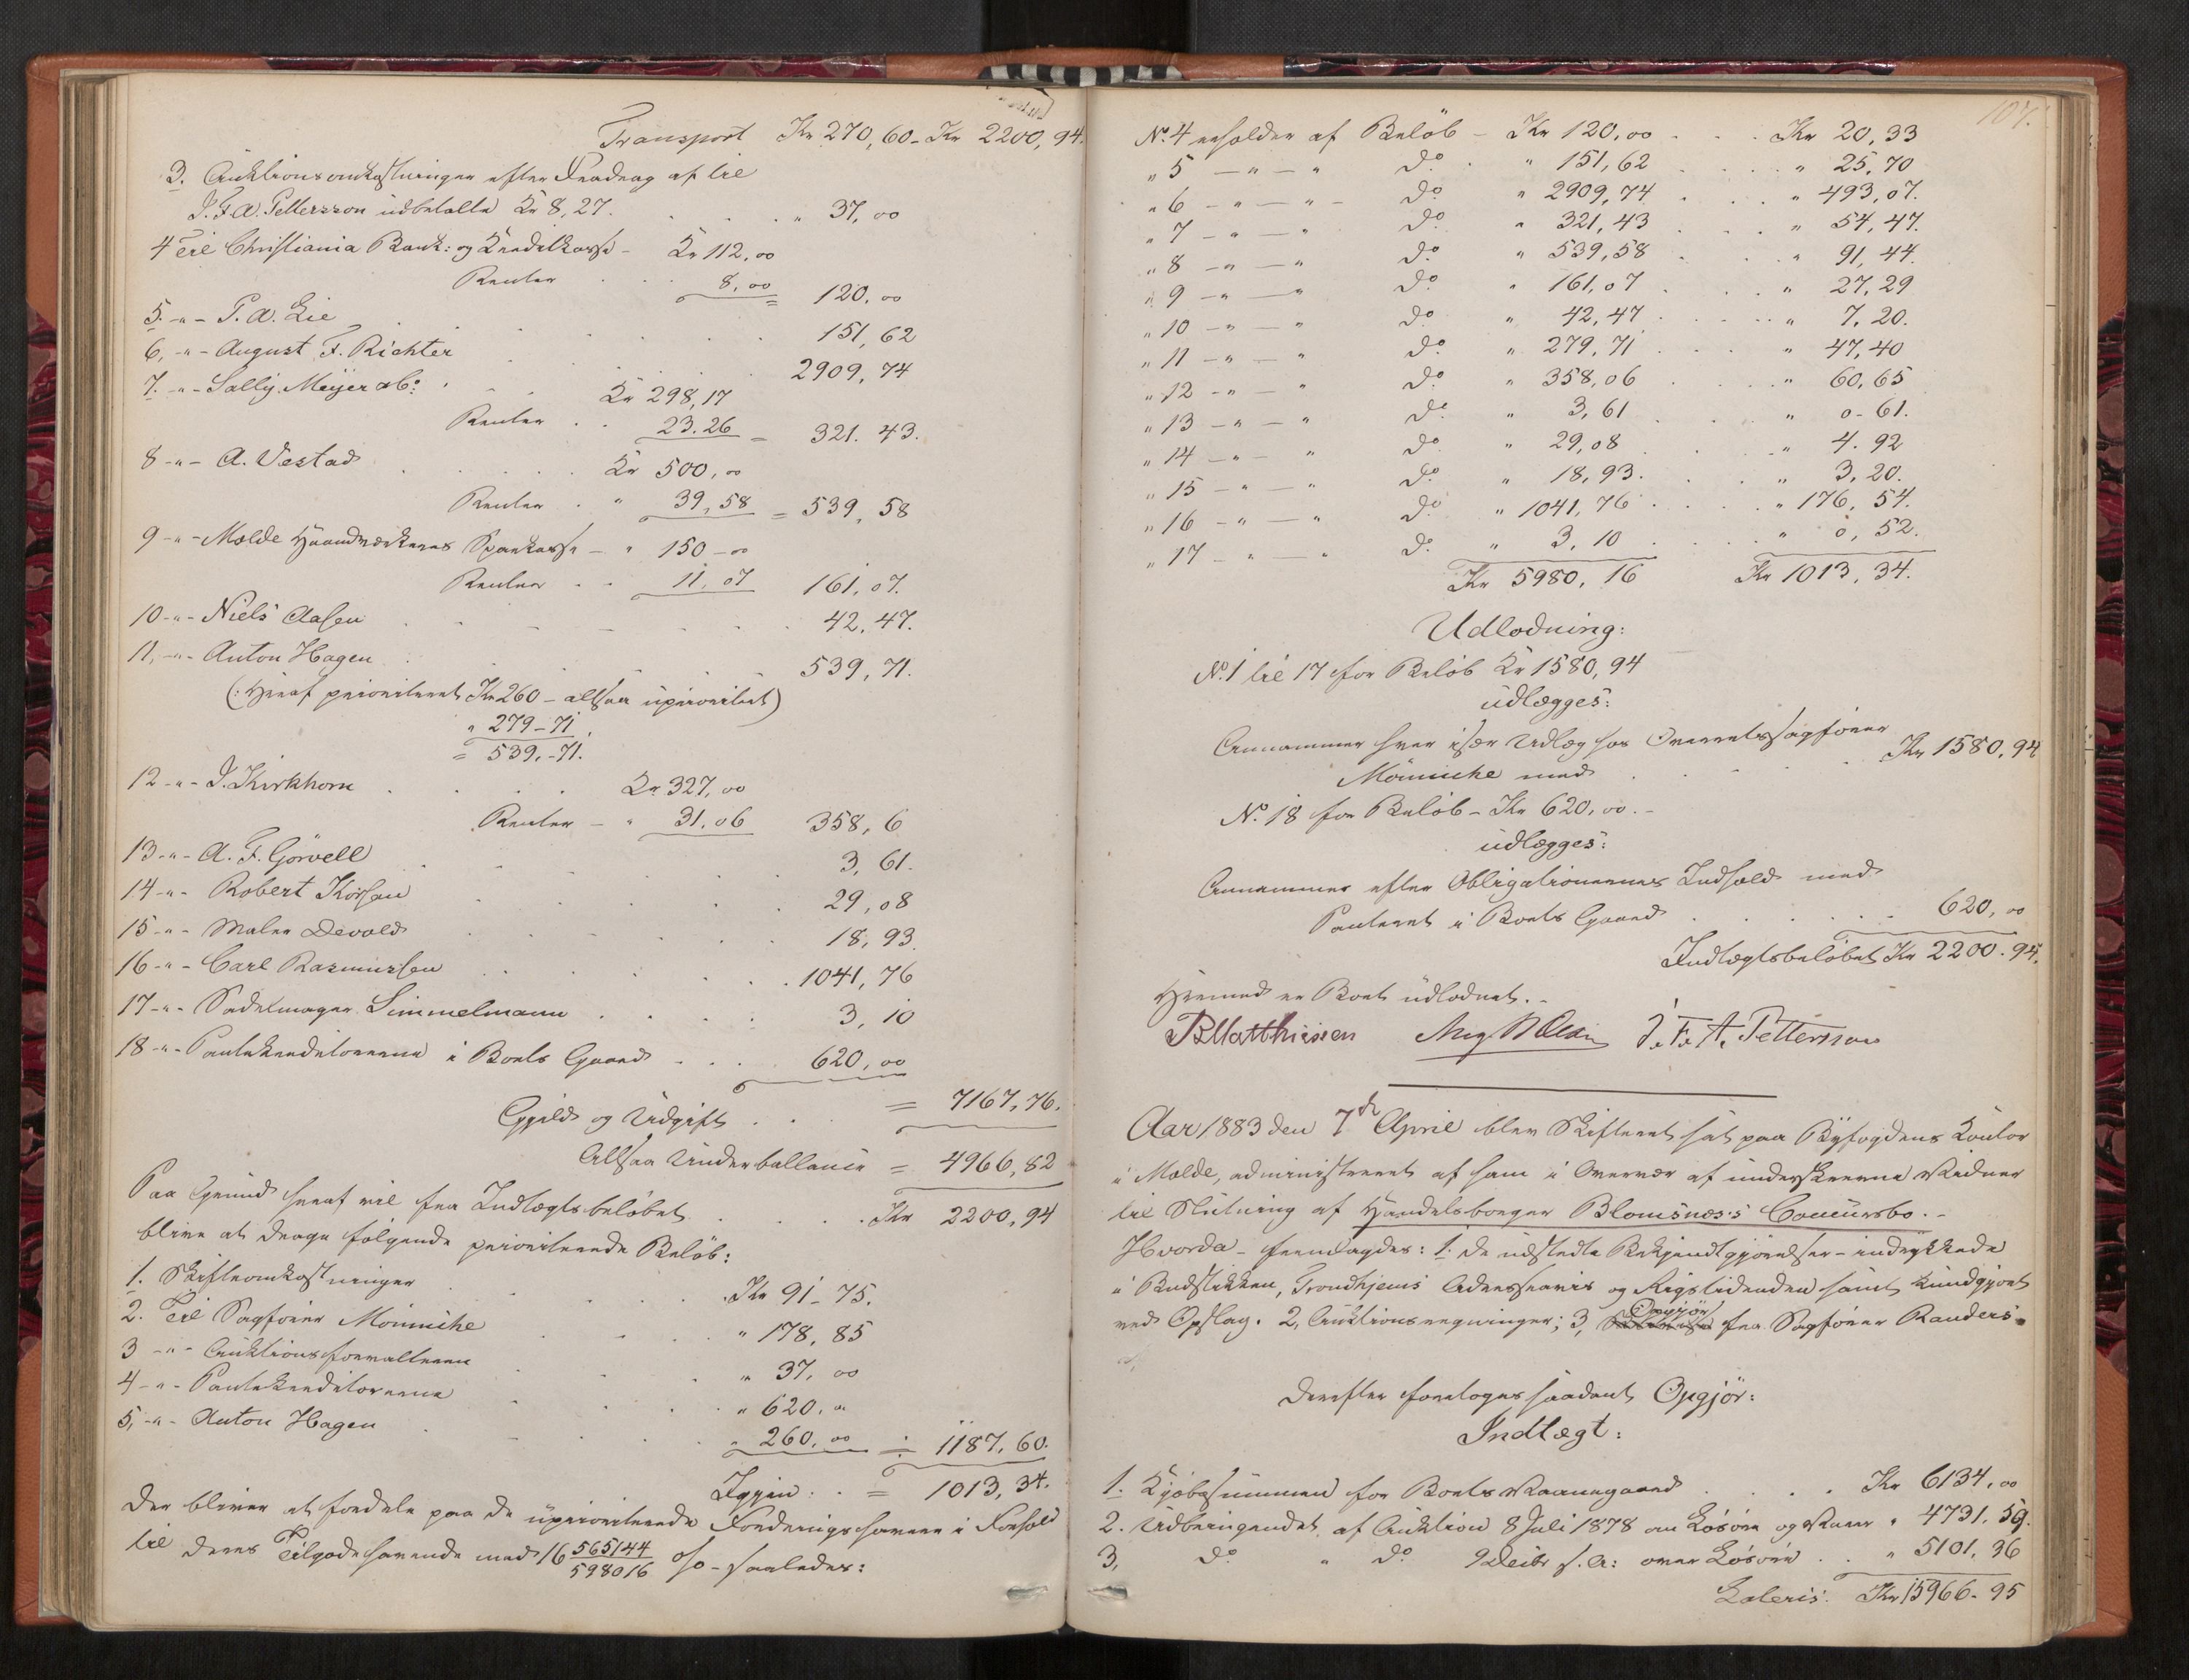 Transport Kr 270,60 - Kr 2200,94.
3. Auktionsomkostninger efter Fradrag af til
J. F. A. Pettersson udbetalte Kr 8,27. . . . " 37,00
4 Til Christiania Bank: og Kreditkasse - Kr 112,00
Renter . . . 8,00 = 120,00
5. -"- P. A. Lie . . . 151,62
6, -"- August F. Richter . . . 2909,74
7. -"- Sally Meyer ab: . . . Kr 298,17
Renter . . 23.26 = 321.43.
8 -"- A. Vestad . . . Kr 500,00
Renter . " 39,58 = 539,58
9 -"- Molde Haandværkeres Sparkasse - " 150-00
Renter . . 11.07 161,07.
10 -"- Niels Aasen . . . 42,47.
11, -"- Anton Hagen . . . 539,71.
(: Heraf prioriteret Kr 260 - altsaa uprioritert)
" 279-71.
= 539.-71.
12 -"- J. Kirkhorn . . . Kr 327,00
Renter - " 31.06 358,6
13 -"- A. F. Görvell . . . 3,61.
14 -"- Robert Korsen . . . 29,08
15 -"- Maler Devold . . . 18,93.
16 -"- Carl Rasmussen . . . 1041,76
17 -"- Sadelmager Simmelmann . . . 3,10
18 -"- Pantekreditorerne i Boets Gaard . . . 620,00
Gjæld og Udgift . . . = 7167,76.
Altsaa Underballance = 4966,82
Paa Grund heraf vil fra Indtægtsbeløbet . . . Kr 2200,94
blive at drage følgende prioriterede Beløb:
1. Skifteomkostninger . . . Kr 91-75.
2. Til Sagfører Mönniche . . . " 178,85
3 -"- Auktionsforvalteren . . . " 37,00
4 -"- Pantekreditorerne . . . " 620."
5, -"- Anton Hagen . . . " 260,00 ÷ 1187,60.
Igjen . . = 1013,34.
der bliver at fordele paa de uprioriterede Fordringshavere i Forhold
til deres Tilgodehavende med 16 565144/598016 % - saaledes:
107.
No. 4 erholder af Beløb - Kr 120,00 . . . Kr 20,33
" 5 -"-" do. . " 151,62 . . . " 25,70
" 6 -"-"- do. " 2909,74 . . . " 493,07.
" 7 -"-" do. " 321,43 . . . " 54,47.
" 8 -"-" do. " 539,58 . . . " 91,44.
" 9 -"-" do. " 161,07 . . . " 27,29
" 10 -"-" do. " 42,47 . . . " 7.20.
" 11 -"-" do. " 279,71 . . . " 47,40
" 12 -"-" do. " 358,06 . . . " 60,65
" 13 -"-" do. " 3,61 . . . " 0-61.
" 14 -"-" do. " 29,08 . . . " 4.92
" 15 -"-" do. " 18,93. . . . " 3,20.
" 16 -"-" do. " 1041,76 . . . " 176,54.
" 17 -"-" do. " 3,10 . . . " 0,52.
Kr 5980,16 Kr 1013,34.
Udlodning:
No. 1 til 17 for Beløb Kr 1580,94
udlægges:
Annammer hver især Udlæg hos Overretssagfører
Mönniche med . . . Kr 1580.94
No. 18 for Beløb - Kr 620,00.-
udlægges:
Annammer efter Obligationernes Indhold med
Panteret i Boets Gaard . . . 620,00
Indtægtsbeløbet Kr 2200.94.
Hermed er Boet udlodnet.-
B Matthiessen J. F. A. Pettersson
Aar 1883 den 7de April blev Skifteret sat paa Byfogdens Kontor
i Molde, administreret af ham i Overvær af underskrevne Vidner
til Slutning af Handelsborger Blomsnæs's Concursbo.-
Hvorda - fremlagdes: 1. de udstedte Bekjendtgjørelser - indrykkede
i Budstikken, Trondhjems Adresseavis og Rigstidenden samt kundgjort
ved Opslag. 2, Auktionsregninger; 3, Opgjör fra Sagfører Randers.
derefter foretoges saadant Opgjör:
Indtægt:
1. Kjöbesummen for Boets Vaaningsgaard . . . Kr 6134,00
2. Udbringendet af Auktion 8 Juli 1878 over Løsøre og Varer " 4731.59.
3, do. " do. 9 Decbr s. A: over Løsøre . . " 5101.36
Lateris: Kr 15966.95